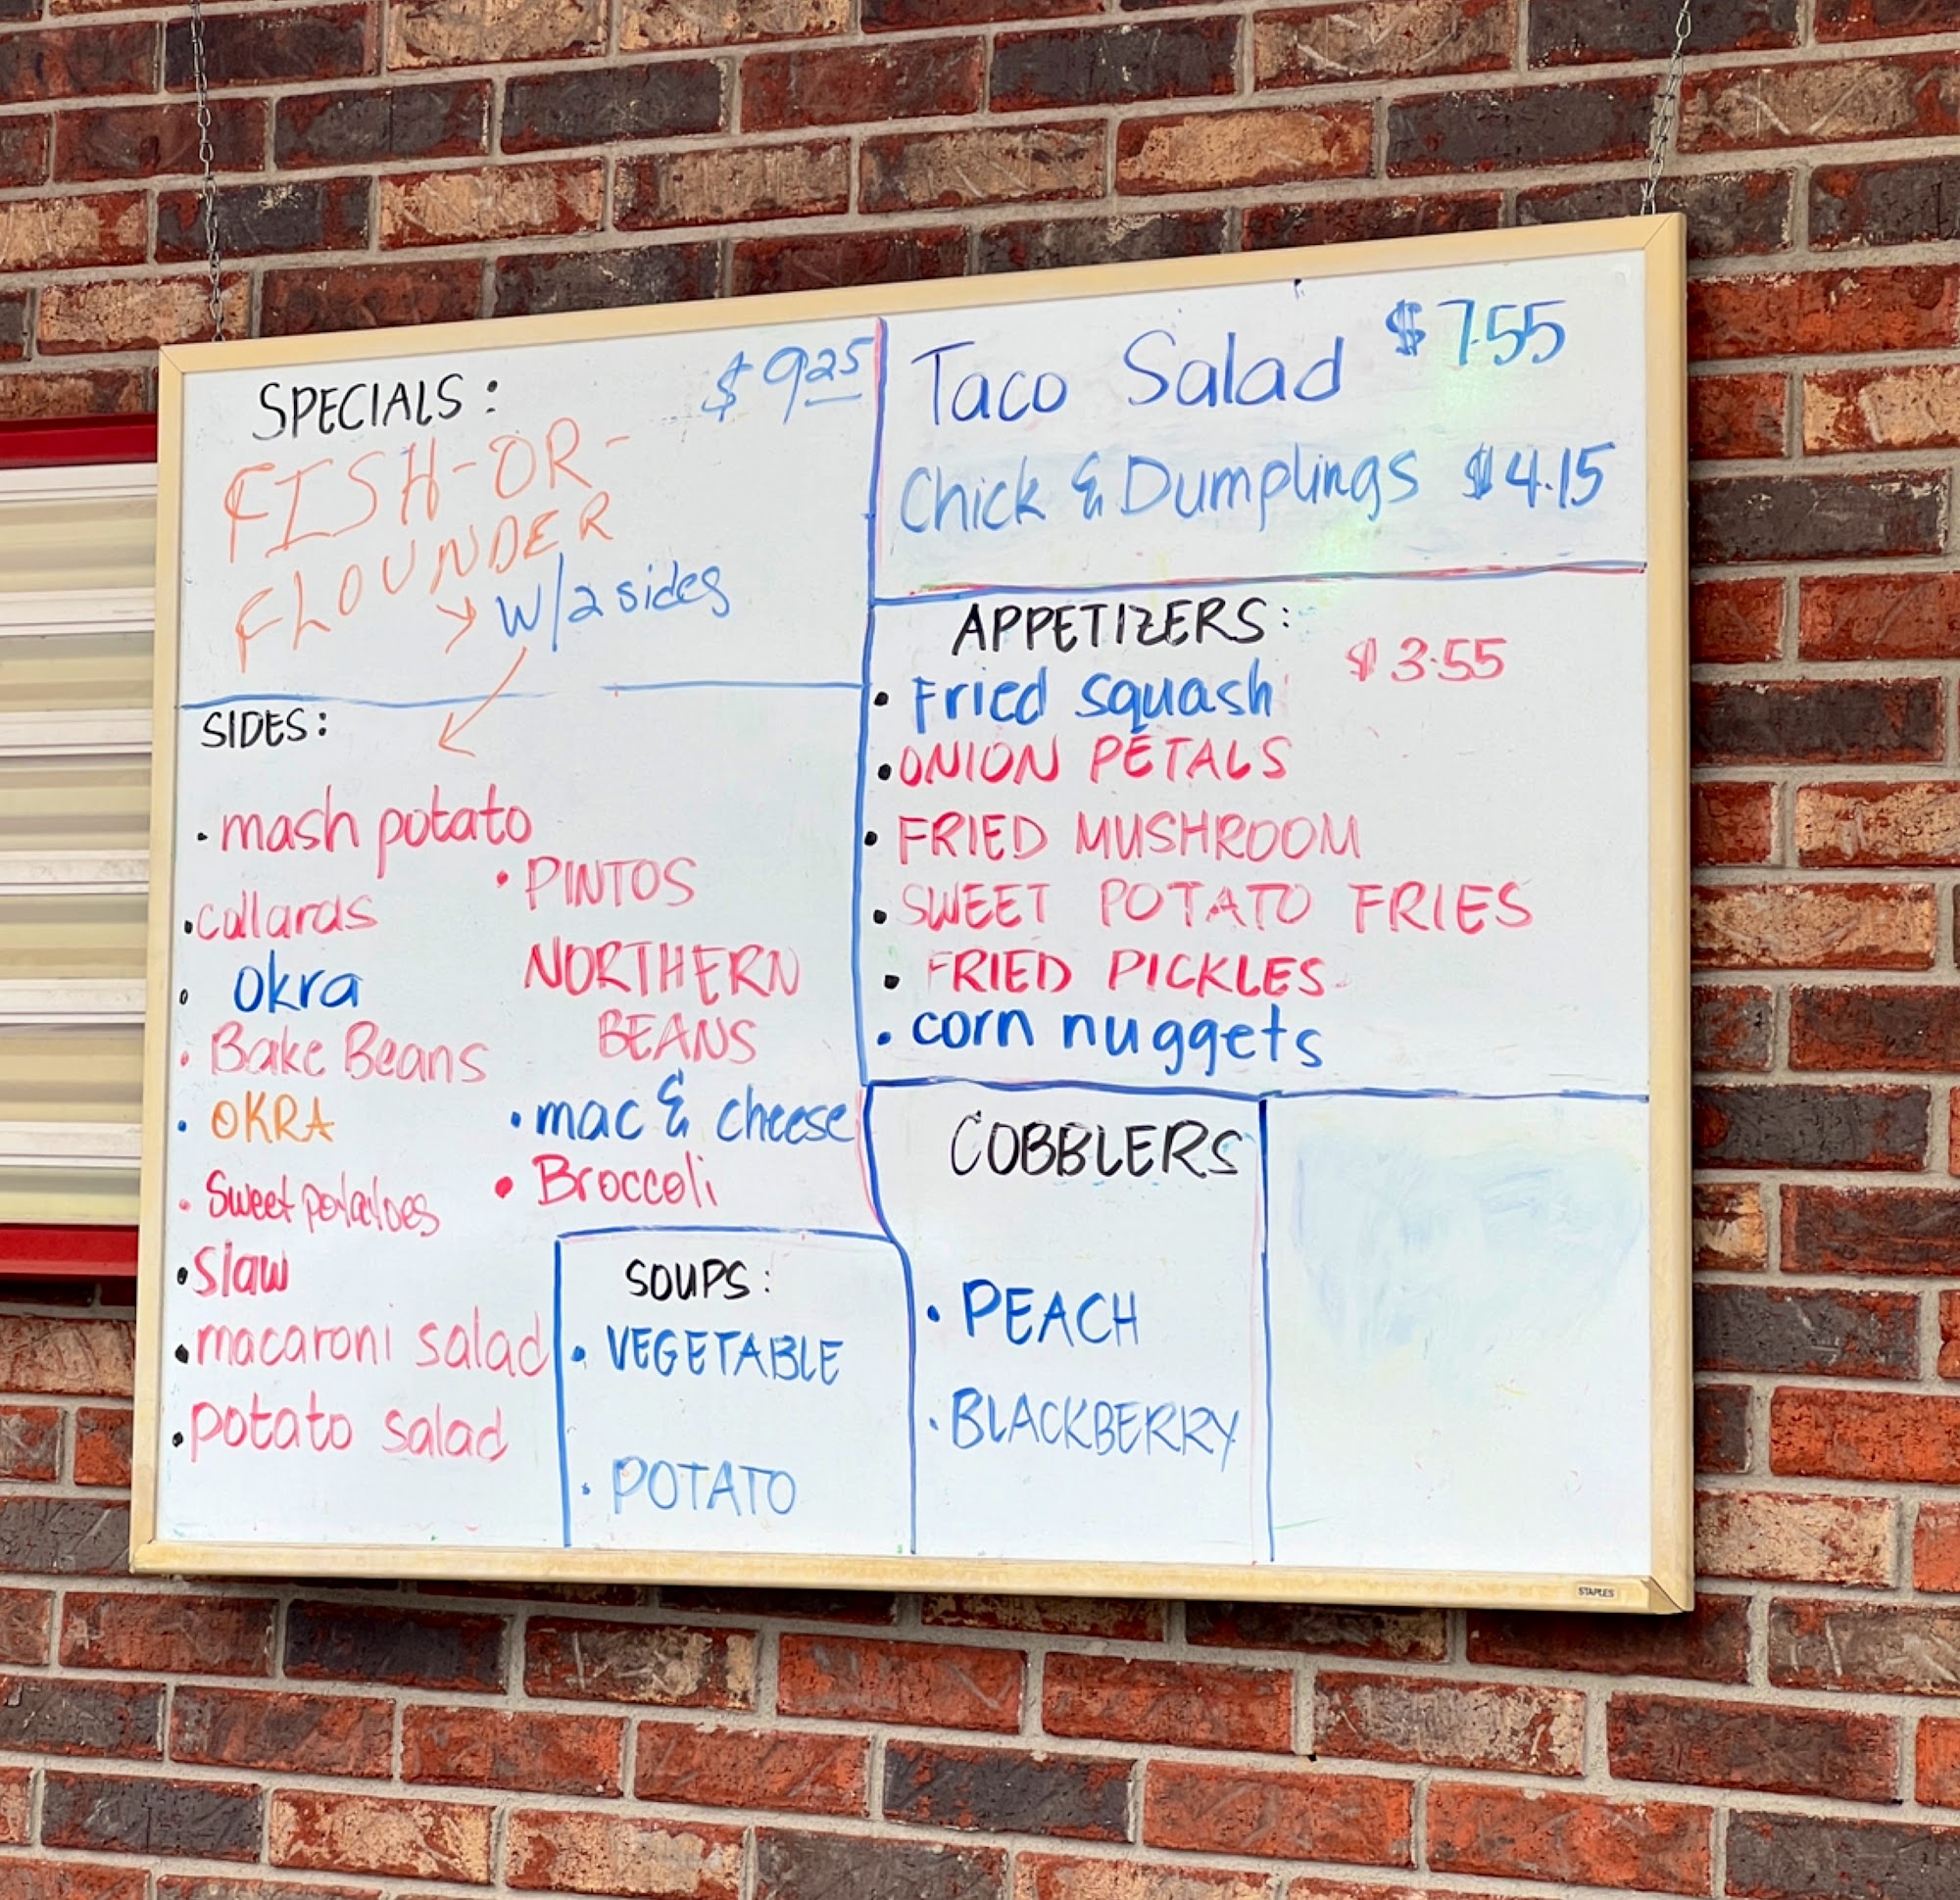 SPECIALS: $9.25
FISH-OR-
FLOUNDER
W/2 sides
Taco Salad $7.55
Chick & Dumplings $4.15
APPETIZERS:
$3.55
• Fried squash
• ONION PETALS
• FRIED MUSHROOM
• SWEET POTATO FRIES
• FRIED PICKLES
• corn nuggets
SIDES:
• mash potato
• collards
• okra
• Bake Beans
• OKRA
• Sweet potatoes
• slaw
• macaroni salad
• potato salad
• PINTOS
NORTHERN
BEANS
• mac & cheese
• Broccoli
SOUPS:
• VEGETABLE
• POTATO
COBBLERS
• PEACH
• BLACKBERRY
STAPLES